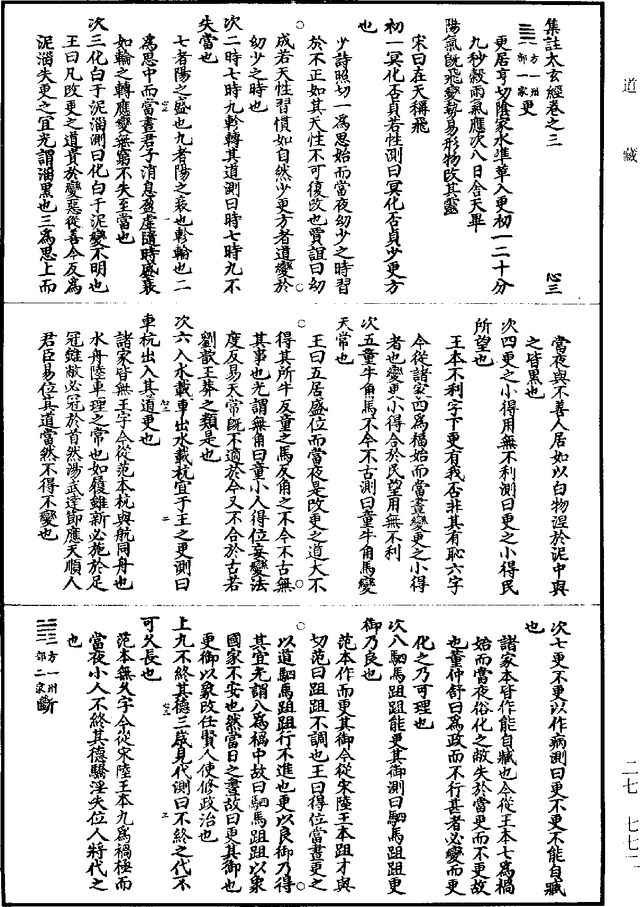 道藏
集註太玄經卷之三 心三
一方一州三部一家 更
更居亨切陰家水準革入更初一二十分
九秒穀雨氣應次八日舍天畢
陽氣旣飛變勢易形物改其靈
宋曰在天稱飛
初一冥化否貞若性測曰冥化否貞少更方
也
少詩照切一爲思始而當夜幼少之時習
於不正如其天性不可復改也賈誼曰幼
成若天性習慣如自然少更方者道變於
幼少之時也
次二時七時九軫轉其道測曰時七時九不
失當也
七者陽之盛也九者陽之衰也軫輪也二
爲思中而當晝君子消息盈虛隨時盛衰
如輪之轉應變無窮不失至當也
次三化白于泥淄測曰化白于泥變不明也
王曰凡改更之道貴於變惡從善今反爲
泥淄失更之宜光謂淄黑也三爲思上而
當夜與不善人居如以白物涅於泥中與
之皆黑也
次四更之小得用無不利測曰更之小得民
所望也
王本不利字下更有我否非其有恥六字
今從諸家四爲福始而當晝變更之小得
者也變更小得合於民望用無不利
次五童牛角馬不今不古測曰童牛角馬變
天常也
王曰五居盛位而當夜是改更之道大不
得其所牛反童之馬反角之不今不古無
其事也光謂無角曰童小人得位妄變法
度反易天常旣不適於今又不合於古若
劉歆王莽之類是也
次六入水載車出水載杭宜于王之更測曰
車杭出入其道更也
諸家皆無王字今從范本杭與航同舟也
水舟陸車理之常也如履雖新必施於足
冠雖敝必冠於首然湯武達節應天順人
君臣易位其道當然不得不變也
次七更不更以作病測曰更不更不能自臧
也
諸家本皆作能自臧也今從王本七爲禍
始而當夜俗化之敝失於當更而不更故
也董仲舒曰爲政而不行甚者必變而更
化之乃可理也
次八駟馬跙跙能更其御測曰駟馬跙跙更
御乃良也
范本作而更其御今從宋陸王本跙才與
切范曰跙跙不調也王曰得位當晝更之
以道駟馬跙跙行不進也更以良御乃得
其宜光謂八爲禍中故曰駟馬跙跙以象
國家不安也然當日之晝故曰更其御也
更御以象改任賢人使修政治也
上九不終其德三歲見代測曰不終之代不
可久長也
范本無久字今從宋陸王本九爲禍極而
當夜小人不終其德驕淫失位人將代之
也
三方一州三部二家 斷
二七 七七二